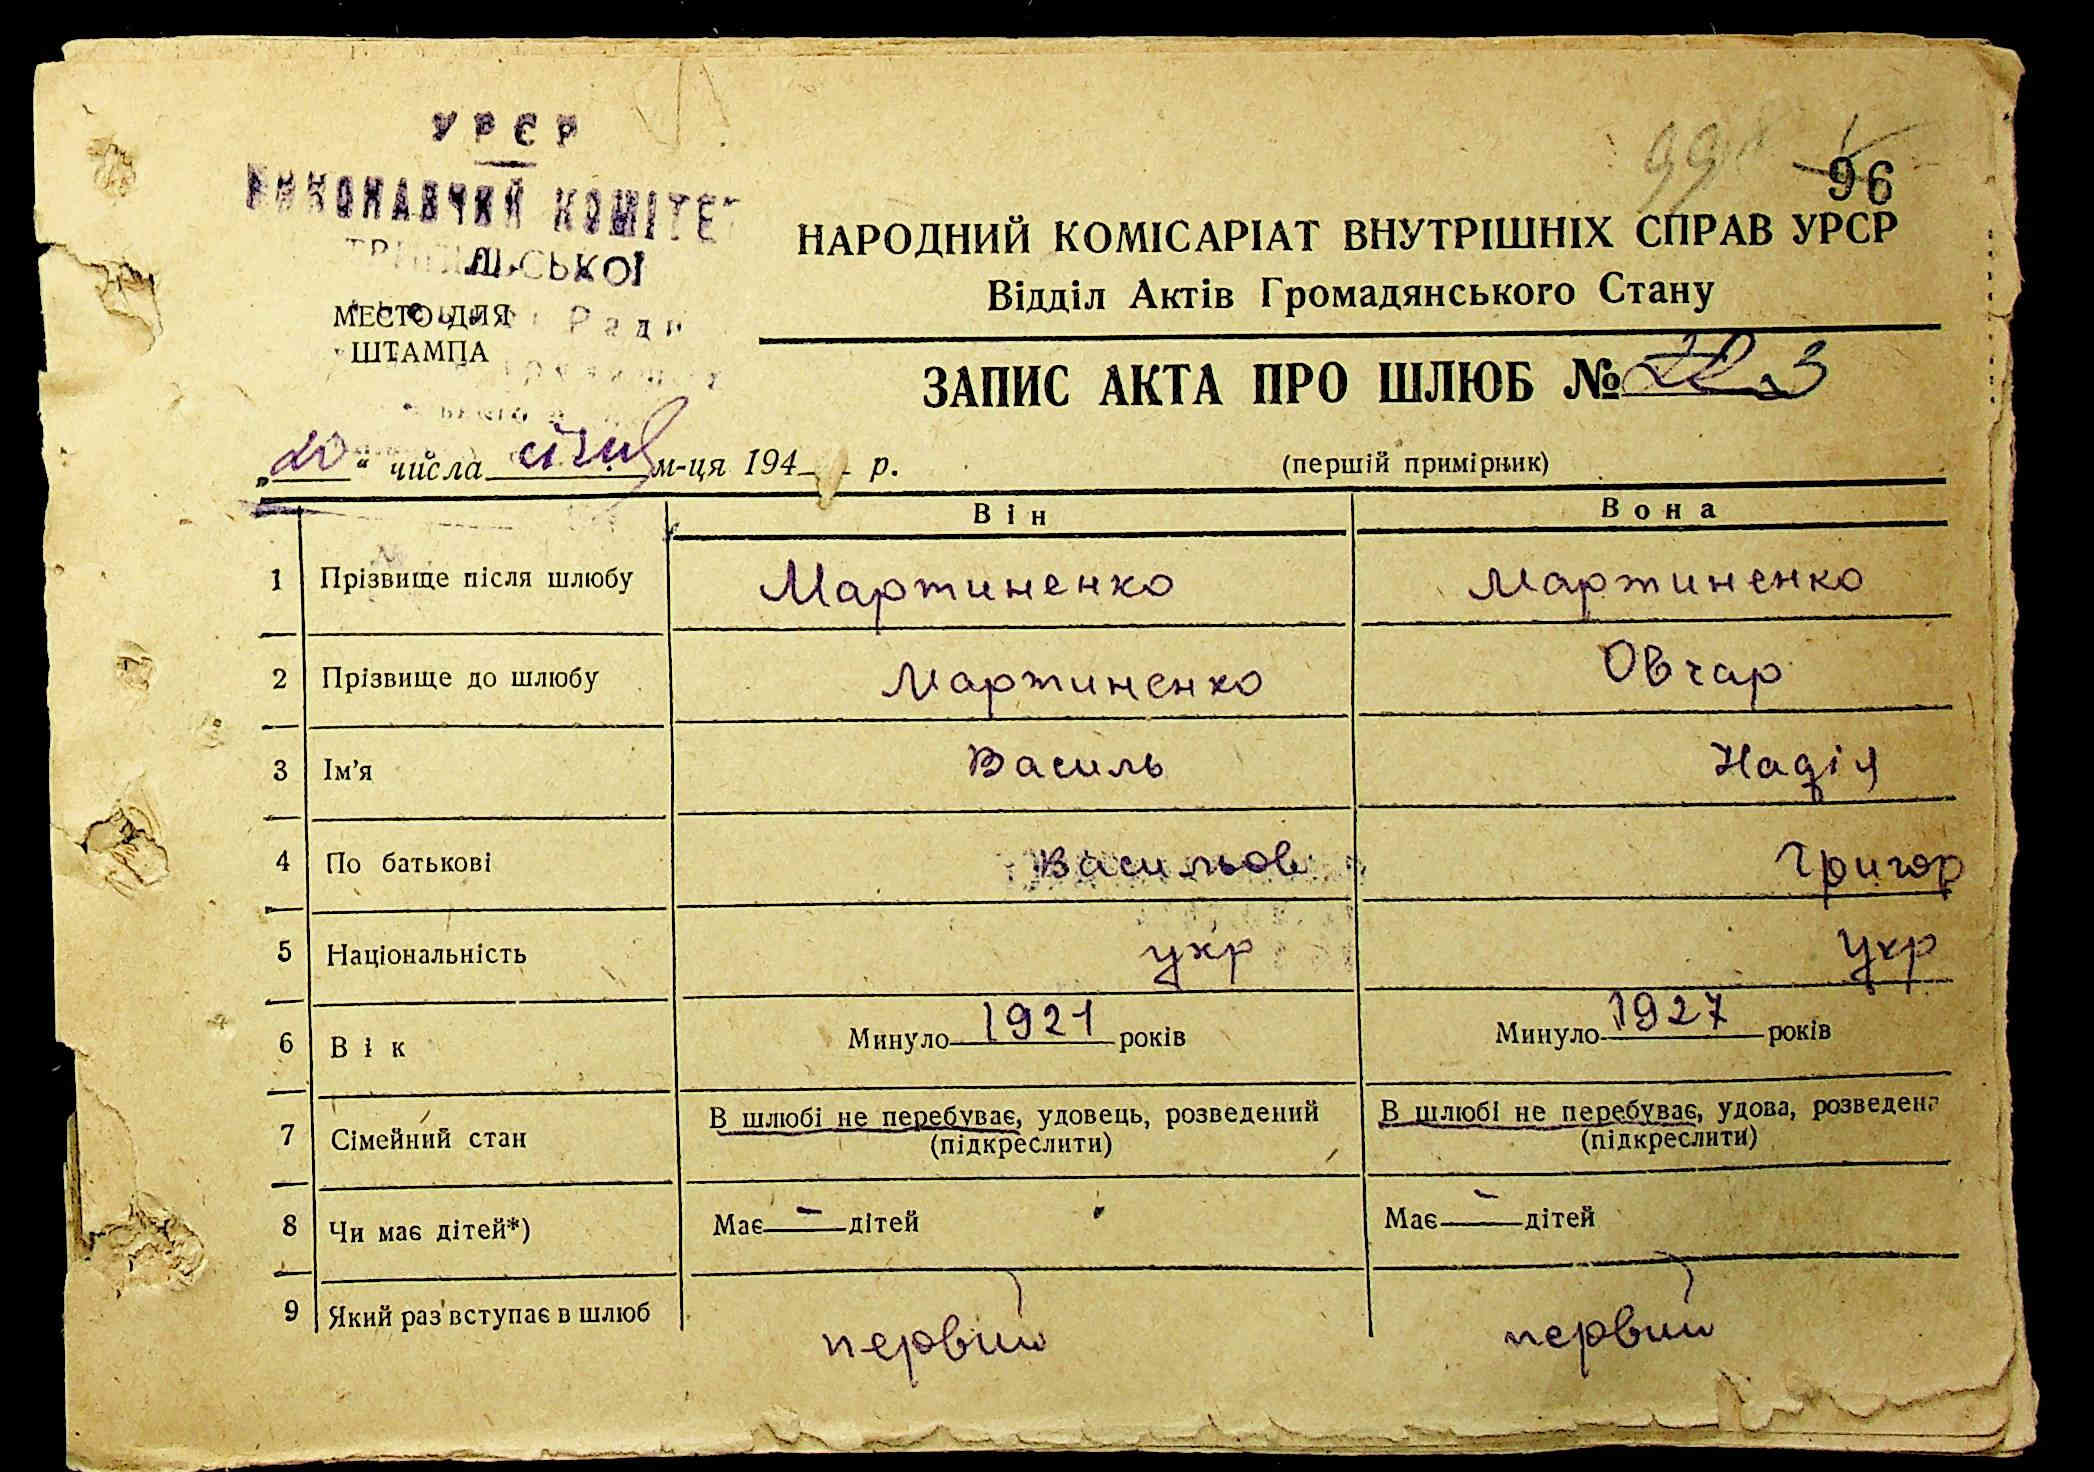 УРСР
ВИКОНАВЧИЙ КОМІТЕТ
МЕСТО ДЛЯ
ШТАМПА
99
96
НАРОДНИЙ КОМІСАРІАТ ВНУТРІШНІХ СПРАВ УРСР
Відділ Актів Громадянського Стану
ЗАПИС АКТА ПРО ШЛЮБ № 3
„20“ числа січня м-ця 194 р.
(першій примірник)
Він Вона
1 Прізвище після шлюбу Мартиненко Мартиненко
2 Прізвище до шлюбу Мартиненко Овчар
3 Ім’я Василь Надія
4 По батькові Васильов Григор
5 Національність укр Укр
6 Вік Минуло 1921 років Минуло 1927 років
7 Сімейний стан В шлюбі не перебуває, удовець, розведений В шлюбі не перебуває, удова, розведена
(підкреслити) (підкреслити)
8 Чи має дітей*) Має - дітей Має - дітей
9 Який раз вступає в шлюб первий первий